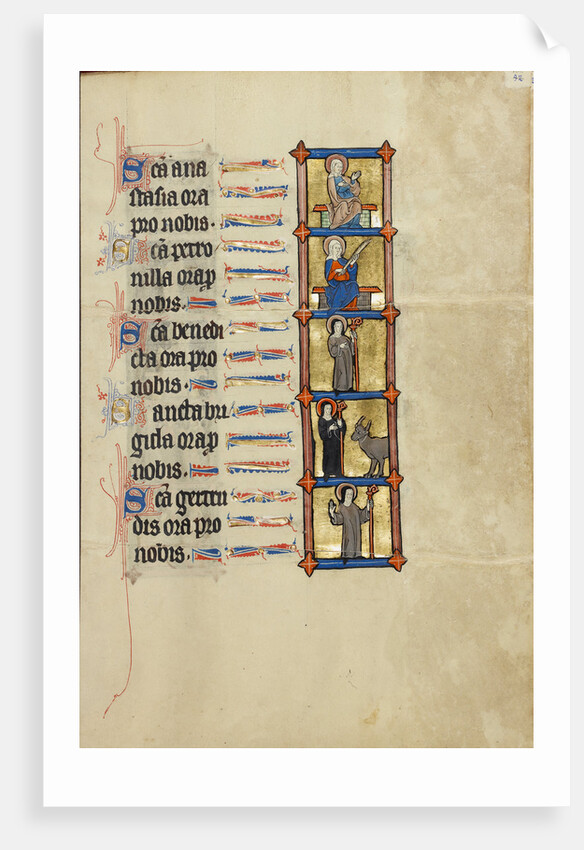 48
Sc̄a ana
stasia ora
pro nobis.
Sc̄a petro
nilla ora p̄
nobis.
Sc̄a benedi
cta ora pro
nobis.
Sancta bri
gida ora p̄
nobis.
Sc̄a gertru
dis ora pro
nobis.